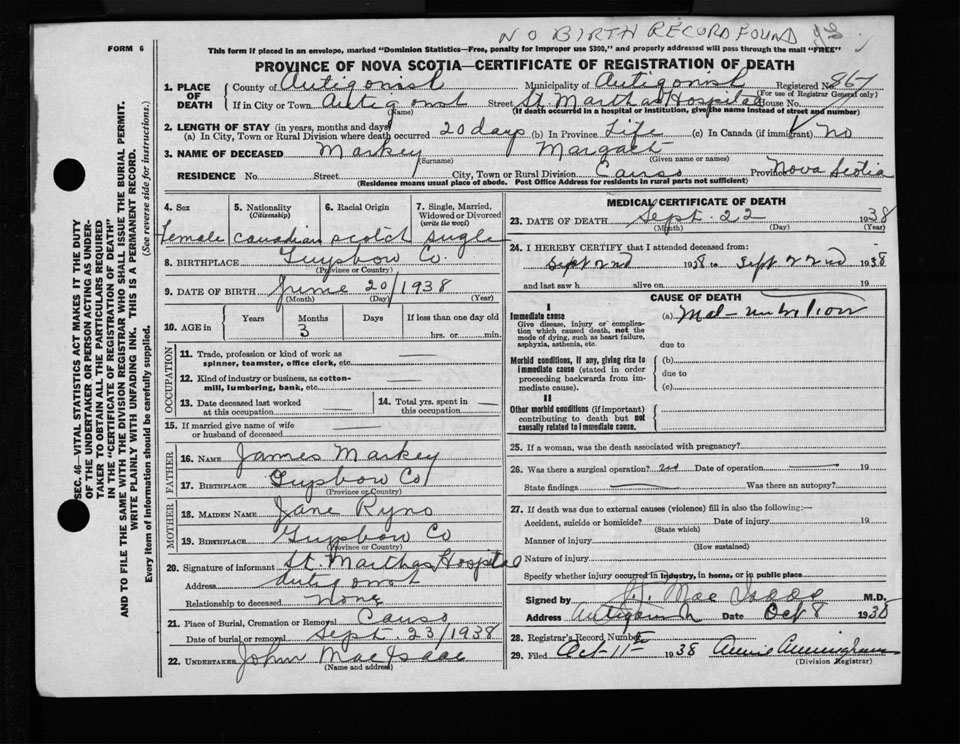 NO BIRTH RECORD FOUND
FORM 6
This form if placed in an envelope, marked "Dominion Statistics—Free, penalty for improper use $300," and properly addressed will pass through the mail "FREE"
PROVINCE OF NOVA SCOTIA—CERTIFICATE OF REGISTRATION OF DEATH
1. PLACE OF DEATH
County of Antigonish Municipality of Antigonish Registered No. 867
(For use of Registrar General only)
If in City or Town Antigonst Street St. Marthas Hospital House No.
(Name) (If death occurred in a hospital or Institution, give the name instead of street and number)
2. LENGTH OF STAY (in years, months and days)
(a) In City, Town or Rural Division where death occurred 20 days (b) In Province Life (c) In Canada (if immigrant) No
3. NAME OF DECEASED Markey Margaet
(Surname) (Given name or names)
RESIDENCE No. Street City, Town or Rural Division Canso Province Nova Scotia
(Residence means usual place of abode. Post Office Address for residents in rural parts not sufficient)
4. Sex
Female
5. Nationality
(Citizenship)
Canadian
6. Racial Origin
Scotch
7. Single, Married, Widowed or Divorced
(write the word)
Single
8. BIRTHPLACE Guysboro Co.
(Province or Country)
9. DATE OF BIRTH June 20/1938
(Month) (Day) (Year)
10. AGE in
Years Months Days If less than one day old
3 hrs. or min.
OCCUPATION
11. Trade, profession or kind of work as spinner, teamster, office clerk, etc.
12. Kind of industry or business, as cotton-mill, lumbering, bank, etc.
13. Date deceased last worked at this occupation
14. Total yrs. spent in this occupation
15. If married give name of wife or husband of deceased
FATHER
16. NAME James Markey
17. BIRTHPLACE Guysboro Co
(Province or Country)
MOTHER
18. MAIDEN NAME Jane Ryno
19. BIRTHPLACE Guysboro Co
(Province or Country)
20. Signature of informant St. Marthas Hospital
Address Antigonst
Relationship to deceased None
21. Place of Burial, Cremation or Removal Canso
Date of burial or removal Sept. 23/1938
22. UNDERTAKER John MacIsaac
(Name and address)
MEDICAL CERTIFICATE OF DEATH
23. DATE OF DEATH Sept. 22 1938
(Month) (Day) (Year)
24. I HEREBY CERTIFY that I attended deceased from:
Sept 2nd 1938 to Sept 22nd 1938
and last saw h alive on 19
CAUSE OF DEATH
I
Immediate cause
Give disease, injury or complication which caused death, not the mode of dying, such as heart failure, asphyxia, asthenia, etc.
(a) Mal-nutrition
due to
Morbid conditions, if any, giving rise to immediate cause (stated in order proceeding backwards from immediate cause).
(b)
due to
(c)
II
Other morbid conditions (if important) contributing to death but not causally related to immediate cause.
25. If a woman, was the death associated with pregnancy?
26. Was there a surgical operation? no Date of operation 19
State findings Was there an autopsy?
27. If death was due to external causes (violence) fill in also the following:—
Accident, suicide or homicide? Date of injury 19
(State which)
Manner of injury
(How sustained)
Nature of injury
Specify whether injury occurred in industry, in home, or in public place
Signed by J. Mac Isaac M.D.
Address Antigonish Date Oct 8 1938
28. Registrar's Record Number
29. Filed Oct 11th 1938 Annie Cunningham
(Division Registrar)
SEC. 46—VITAL STATISTICS ACT MAKES IT THE DUTY
OF THE UNDERTAKER OR PERSON ACTING AS UNDER-
TAKER TO OBTAIN ALL THE PARTICULARS REQUIRED
IN THE "CERTIFICATE OF REGISTRATION OF DEATH"
AND TO FILE THE SAME WITH THE DIVISION REGISTRAR WHO SHALL ISSUE THE BURIAL PERMIT.
WRITE PLAINLY WITH UNFADING INK. THIS IS A PERMANENT RECORD.
Every item of information should be carefully supplied. (See reverse side for instructions.)